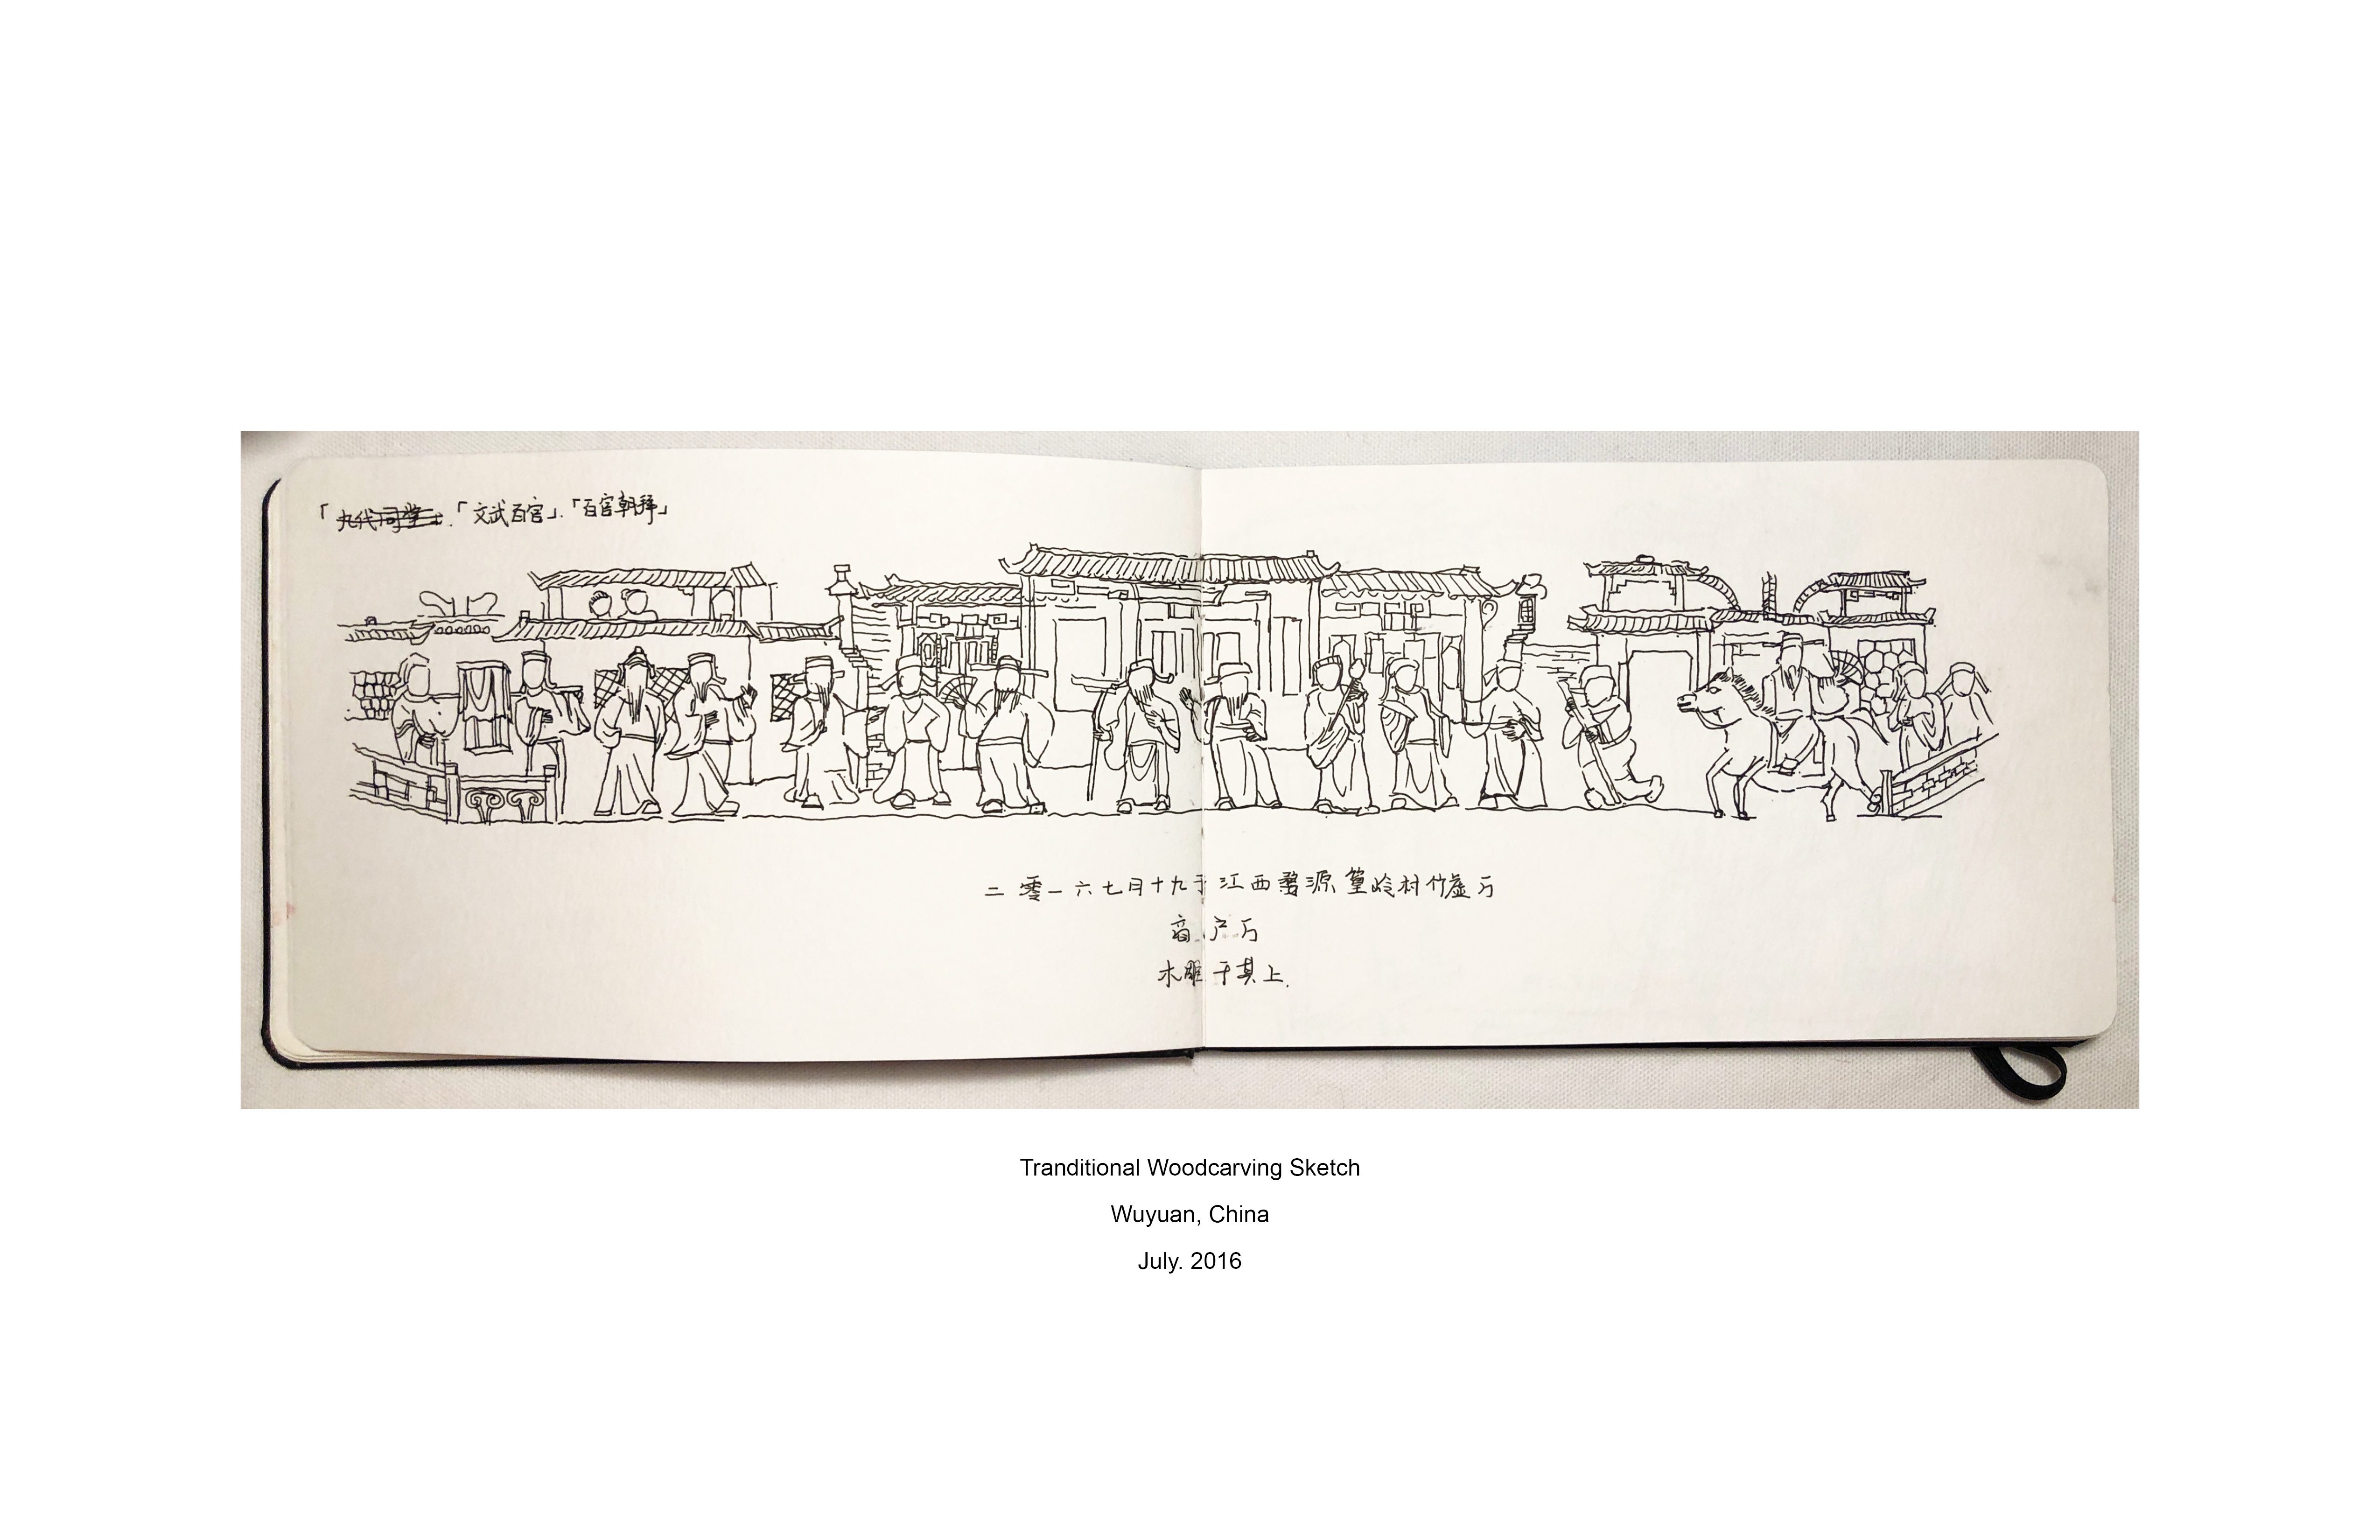 「九代同堂」.「文武百官」.「百官朝拜」
二零一六七月十九于江西婺源篁岭村竹虚厅
商户厅
木雕于其上.
Tranditional Woodcarving Sketch
Wuyuan, China
July. 2016